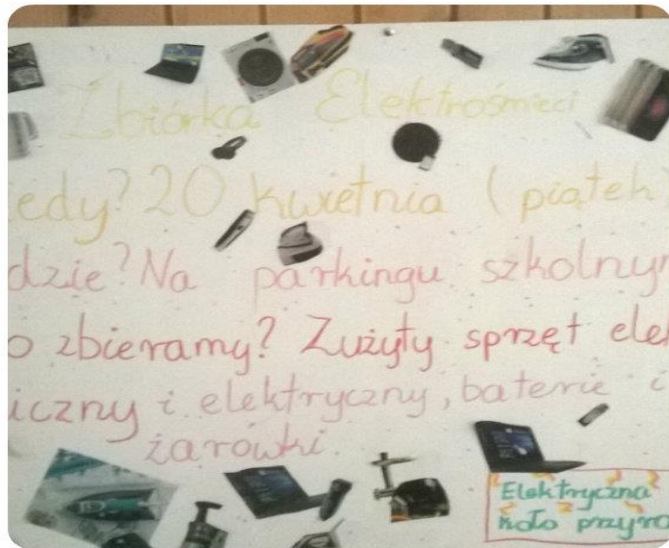 Zbiórka Elektrośmieci
iedy? 20 kwietnia (piątek)
dzie? Na parkingu szkolnym
o zbieramy? Zużyty sprzęt elek
iczny i elektryczny, baterie i
żarówki.
Elektryczna
koło przyro